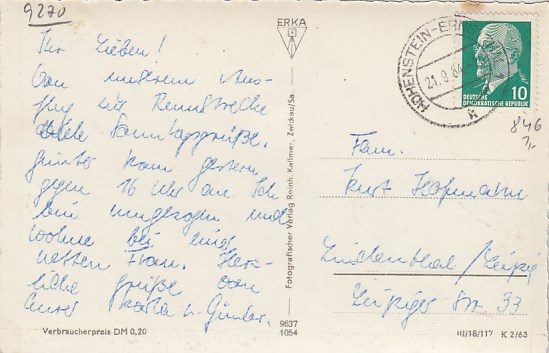 9270
ERKA
HOHENSTEIN-ER
21.9.64
10
DEUTSCHE
DEMOKRATISCHE REPUBLIK
846
Ihr Lieben!
Von unserem Aus-
flug zur Rennstrecke
viele Sonntagsgrüße.
Günter kam gestern
gegen 16 Uhr an. Ich
bin umgezogen und
wohne bei einer
netten Frau. Herz-
liche Grüße von
Eurer Karla u. Günter.
Fotografischer Verlag Reinh. Kallmer, Zwickau/Sa.
Fam.
Kurt Hofmann
Lindenthal/Leipzig
Leipziger Str. 33
Verbraucherpreis DM 0,20
9637
1054
III/18/117 K 2/63